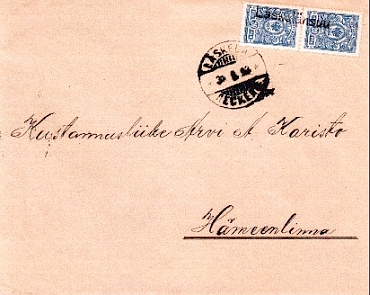 Läskelänsuu
LÄSKELÄ
Kustannusliike Arvi A Karisto
Hämeenlinna